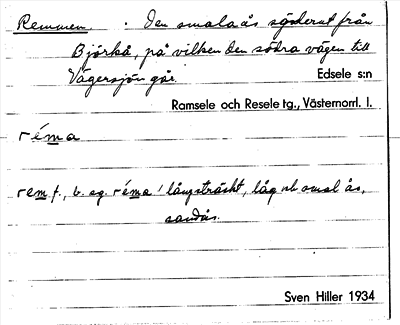 Remmen : Den smala ås söderut från
Björkå, på vilken den södra vägen till
Vägersjön går.
Edsele s:n
Ramsele och Resele tg., Västernorrl. l.
réma
rem f., b. sg. réma / långsträckt, låg och smal ås,
sandås.
Sven Hiller 1934